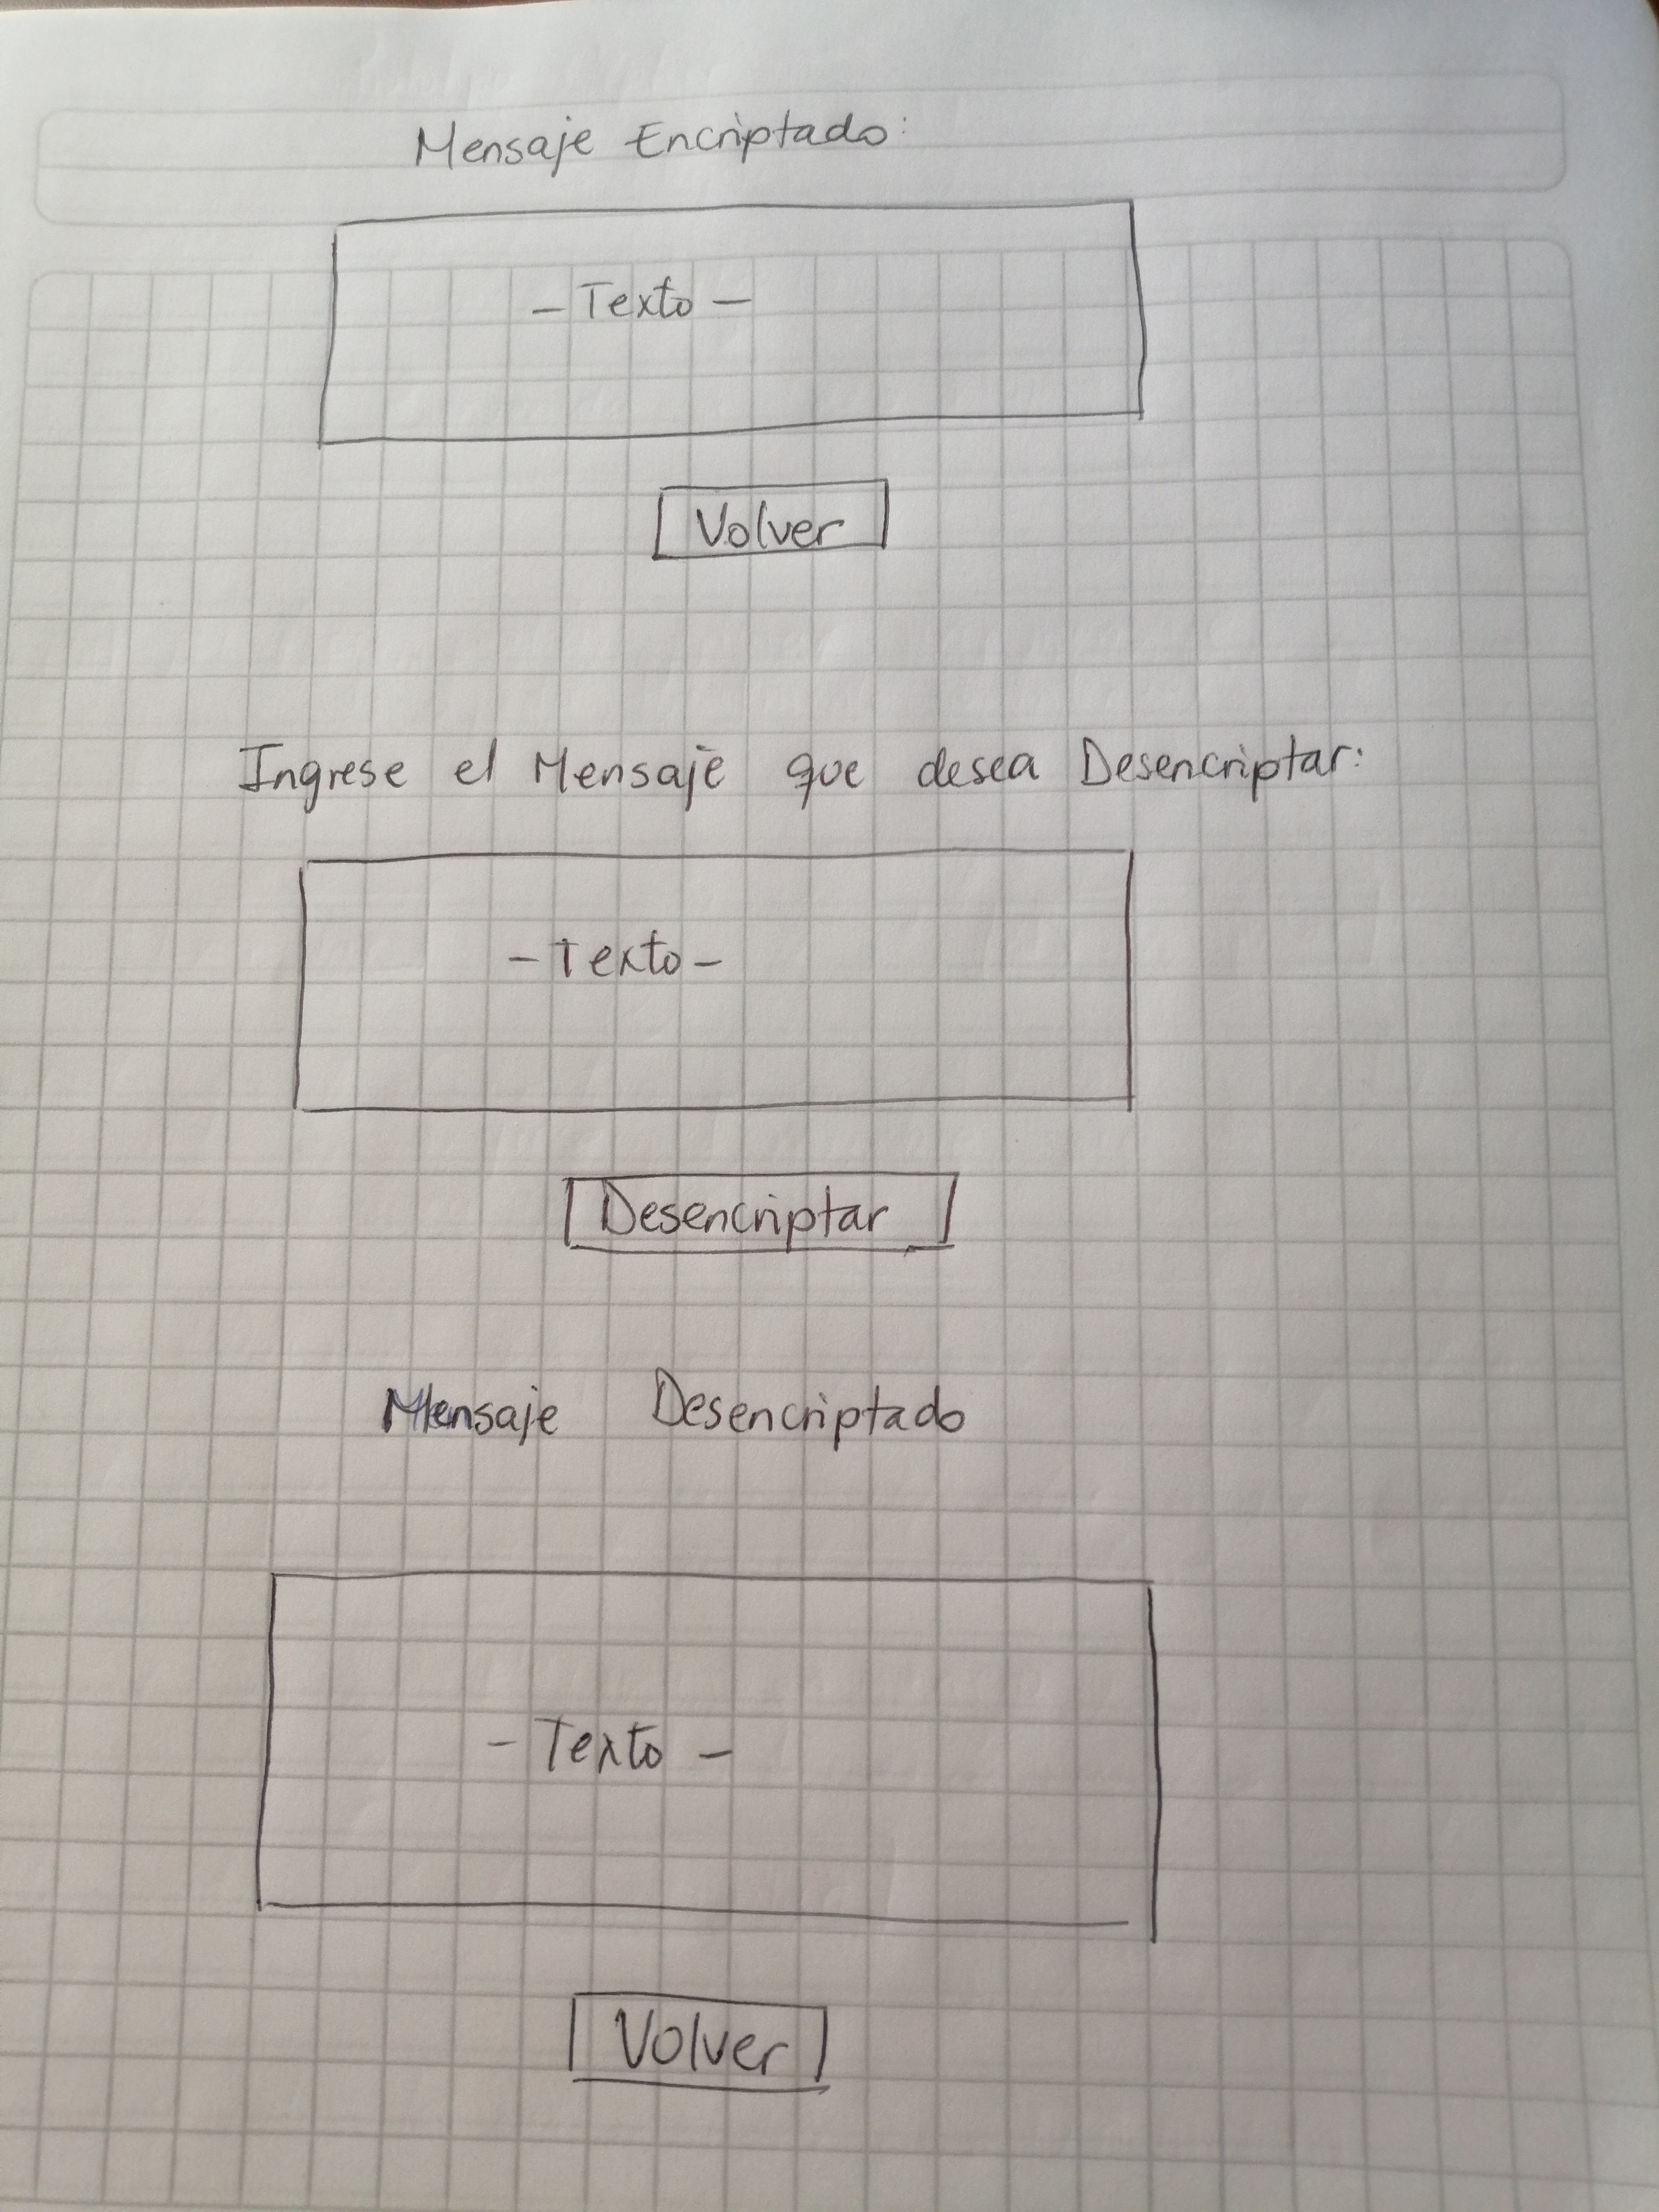 Mensaje Encriptado:
- Texto -
Volver
Ingrese el Mensaje que desea Desencriptar:
- Texto -
Desencriptar
Mensaje Desencriptado
- Texto -
Volver